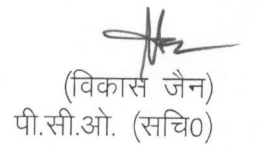 (विकास जैन)
पी.सी.ओ. (सचि0)